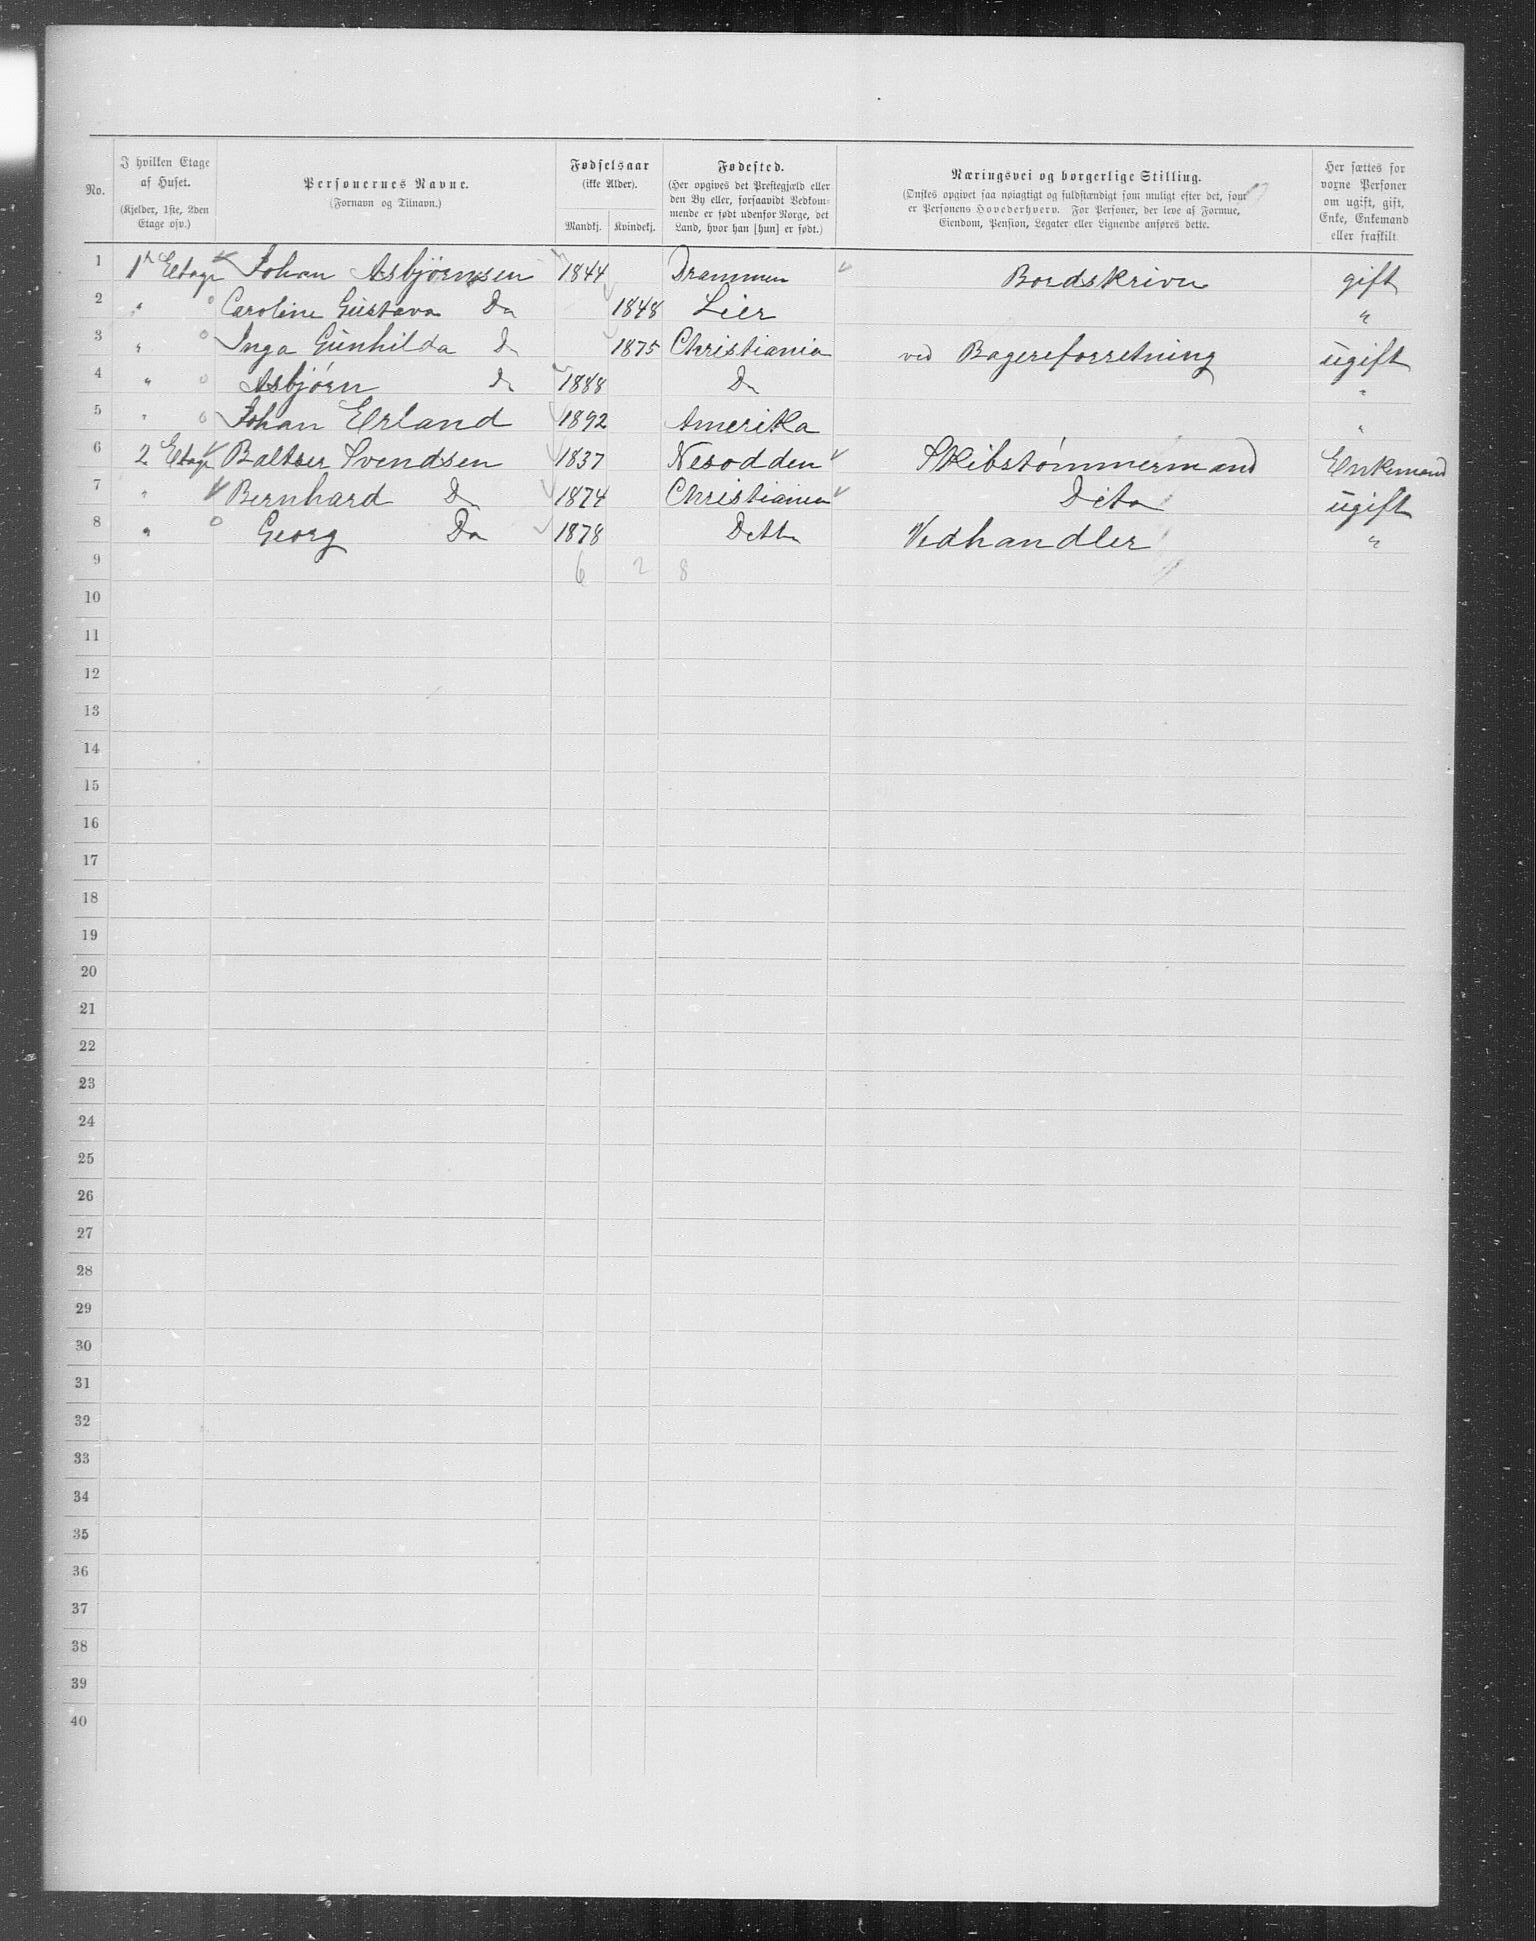 No. | I hvilken Etage af Huset. (Kjelder, 1ste, 2den Etage osv.) | Personernes Navne. (Fornavn og Tilnavn.) | Fødselsaar (ikke Alder). Mandkj. | Kvindekj. | Fødested. (Her opgives det Præstegjæld eller den By eller, forsaavidt Vedkommende er født udenfor Norge, det Land, hvor han [hun] er født.) | Næringsvei og borgerlige Stilling. (Ønskes opgivet saa nøiagtigt og fuldstændigt som muligt efter det, som er Personens Hovederhverv. For Personer, der leve af Formue, Eiendom, Pension, Legater eller Lignende anføres dette. | Her sættes for voxne Personer om ugift, gift, Enke, Enkemand eller fraskilt
1 | 1st Etage | Johan Asbjørnsen | 1844 | | Drammen | Bordskriver | gift
2 | " | Caroline Gustava Do | | 1848 | Lier | | "
3 | " | Inga Gunhilda Do | | 1875 | Christiania | ved Bagereforretning | ugift
4 | " | Asbjørn Do | 1888 | | Do | | "
5 | " | Johan Erland | 1892 | | Amerika | | "
6 | 2 Etage | Baltser Svendsen | 1837 | | Nesodden | Skibstømmermand | Enkemand
7 | " | Bernhard Do | 1874 | | Christiania | Dito | ugift
8 | " | Georg Do | 1878 | | Ditto | Vedhandler | "
9 | | | 6 | 2 | 8
10
11
12
13
14
15
16
17
18
19
20
21
22
23
24
25
26
27
28
29
30
31
32
33
34
35
36
37
38
39
40